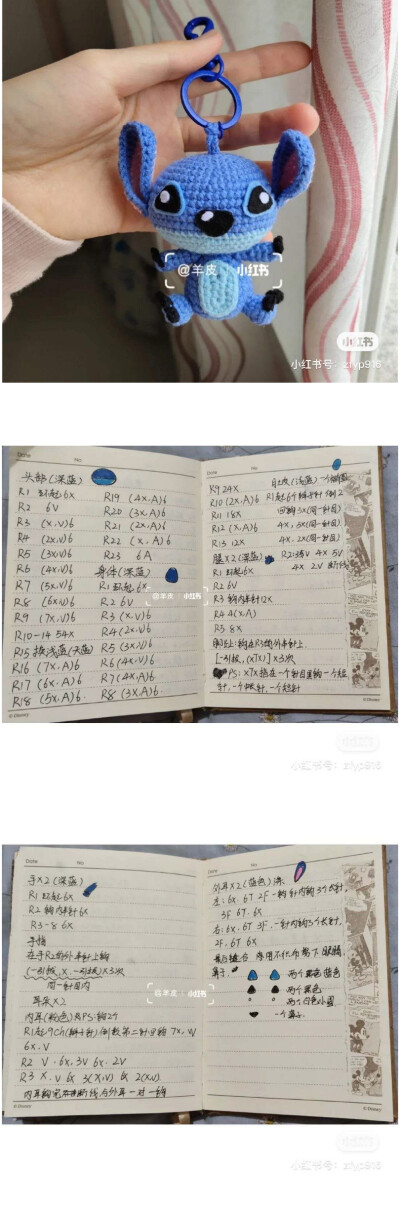 @羊皮 小红书
小红书
小红书号：zfyp916
Date No
头部（深蓝）
R1 环起6X
R2 6V
R3 (X,V)6
R4 (2X,V)6
R5 (3X,V)6
R6 (4X,V)6
R7 (5X,V)6
R8 (6X,V)6
R9 (7X,V)6
R10-14 54X
R15 换浅蓝(天蓝)
R16 (7X,A)6
R17 (6X,A)6
R18 (5X,A)6
R19 (4X,A)6
R20 (3X,A)6
R21 (2X,A)6
R22 (X,A)6
R23 6A
身体(深蓝)
R1 环起,6X
R2 6V
R3 (X,V)6
R4 (2X,V)6
R5 (3X,V)6
R6 (4X,V)6
R7 (4X,A)6
R8 (3X,A)6
© Disney
小红书
Date No
R9 24X
R10 (2X,A)6
R11 18X
R12 (X,A)6
R13 12X
肚皮(浅蓝)
R1起6个辫子针 倒2
回钩3X(同一针目)
4X,5X(同一针目)
4X,2X(同一针目)
R2: 3V 4X 5V
4X 2V 断线
腿X2(深蓝)
R1 环起6X
R2 6V
R3 钩内半针12X
R4 4(X,A)
R5 8X
脚趾:钩在R3的外半针上
[一引拔,(XTX)]X3次
PS: XTX指在一个针目里钩一个短
针,一个中长针,一个短针
© Disney
小红书
小红书号：zfyp916
Date No
手X2(深蓝)
R1 环起6X
R2 钩内半针6X
R3-8 6X
手指
在手R2的外半针上钩
(一引拔,X,一引拔)X3次
同一针目内
耳朵X2
内耳(粉色) PS:钩2个
R1起9Ch(辫子针)倒数第二针里钩 7X, W
6X,V
R2 V 6X, 3V 6X 2V
R3 X,V 6X 3(X,V) 6X 2(X,V)
内耳钩完断线,与外耳一对一缝
© Disney
Date No
外耳X2(蓝色)
左:6X,6T 2F 一针内钩3个长针,
3F 6T 6X
右:6X,6T 3F,一针内钩3个长针,
2F,6T 6X
最后缝合 用不织布剪下眼睛
鼻子
两个黑色 蓝色
两个黑色
两个白色小圆
一个鼻子
© Disney
@羊皮 小红书
小红书
小红书号：zfyp916